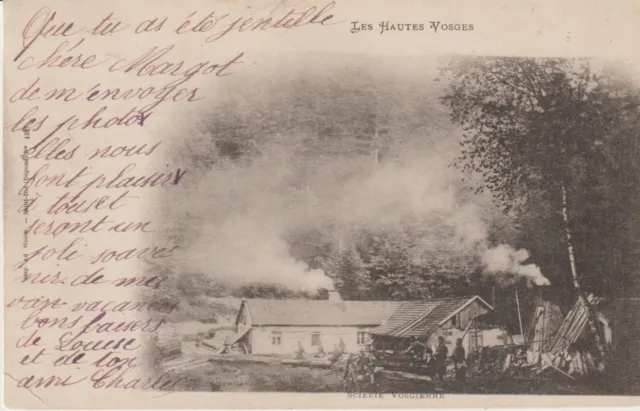 Que tu as été jentille
LES HAUTES VOSGES
chère Margot
de m'envoyer
les photos
elles nous
font plaisir
à tous et
seront un
joli souve
nir de mes
vacances
bons baisers
de Louise
et de ton
ami Charles
SCIERIE VOSGIENNE